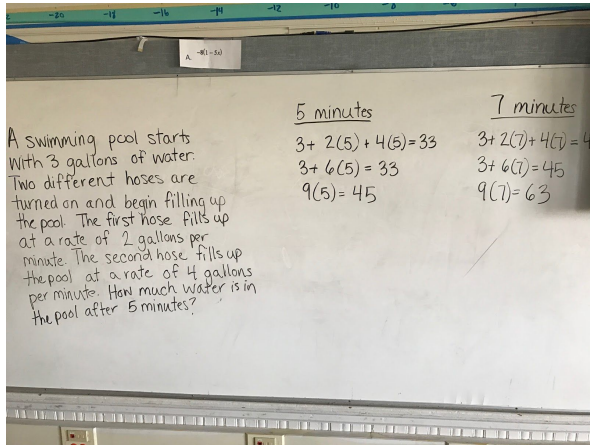 -20 -18 -16 -14 -12 -10 -8 -6
A. -8(1-5x)
A swimming pool starts
with 3 gallons of water.
Two different hoses are
turned on and begin filling up
the pool. The first hose fills up
at a rate of 2 gallons per
minute. The second hose fills up
the pool at a rate of 4 gallons
per minute. How much water is in
the pool after 5 minutes?
5 minutes
3+ 2(5)+ 4(5)=33
3+ 6(5) = 33
9(5)= 45
7 minutes
3+ 2(7)+ 4(7) = 4
3+ 6(7)=45
9(7)= 63